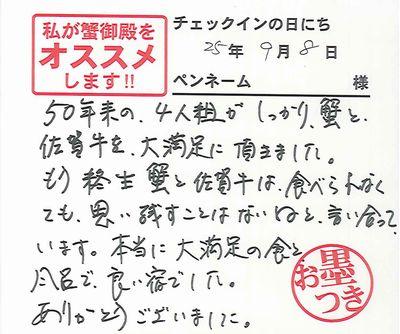 私が蟹御殿を
オススメ
します!!
チェックインの日にち
25年 9月 8日
ペンネーム 様
50年来の、4人組が しっかり、蟹と、
佐賀牛を、大満足に頂きました。
もう 終生 蟹と佐賀牛は、食べられなく
ても、思い残すことは ないねと、言い合って
います。本当に 大満足の食と
風呂で、良い宿でした。
ありがとう ございました。
お墨つき